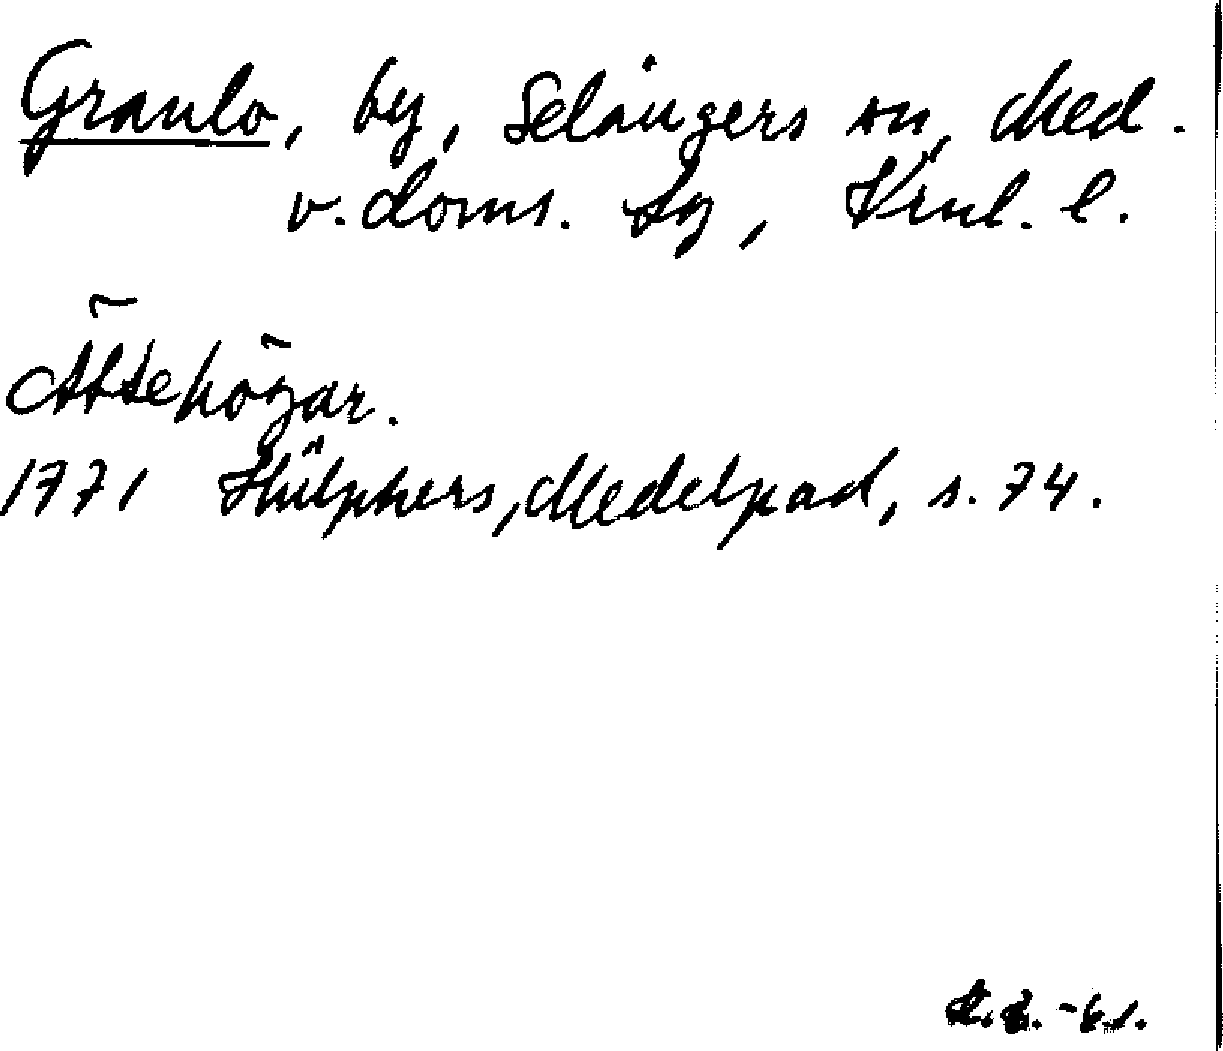 Granlo, by, Selångers sn, Med.
v. doms. sg, Vrnl. l.
Ättehögar.
1771 Hülphers, Medelpad, s. 74.